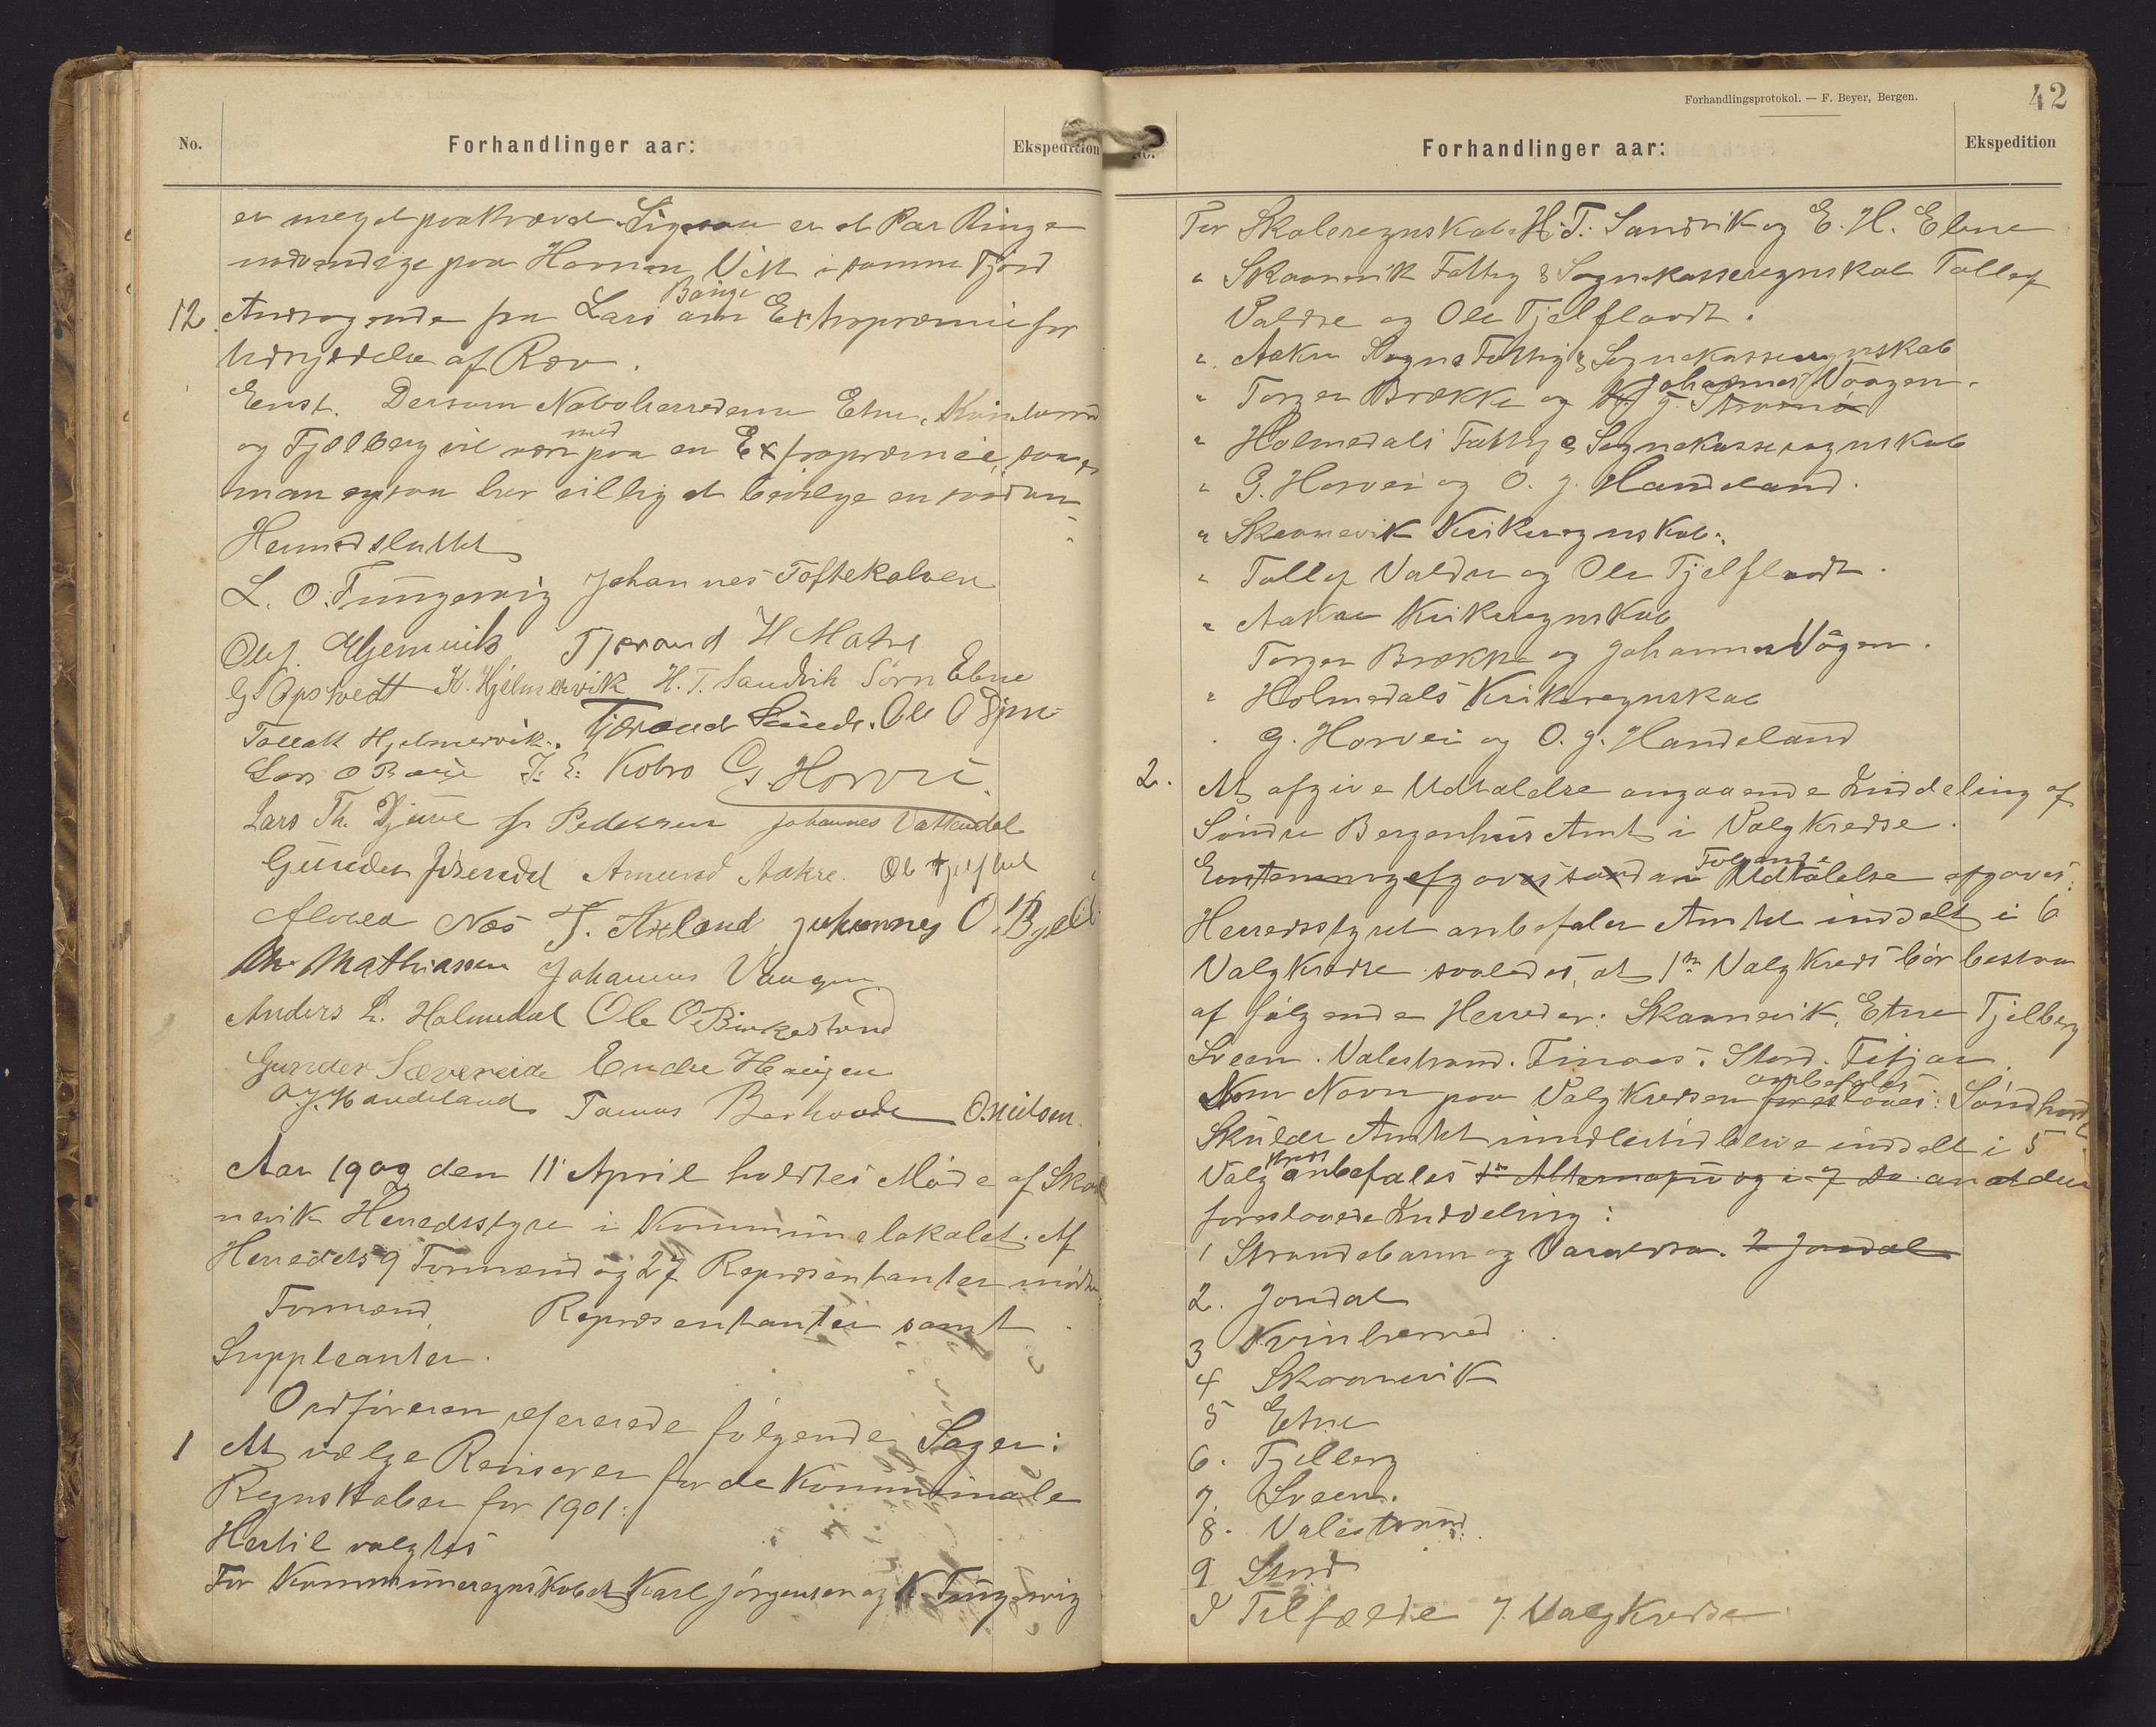 No.
Forhandlinger aar:
Ekspedition
er meget paakrævet. Ligesaa er et Par Ringe
nødvendige paa Hamn Vik i samme Fjord
12. Andragende fra Lars Bauge om Extrapræmie for
Udryddelse af Ræv.
Enst. Dersom Naboherrederne Etne, Kvinherred
og Fjelberg vil være med paa en Extrapræmie, saa er
man ogsaa her villig at bevilge en saadan
Hermed sluttet
L. O. Tungesvig Johannes Toftekalven
Olaf Hjemvik Tjerand H Matre
G Opstvedt K. Hjelmervik H. T. Sandvik Sørn Ebne
Tollak Hjelmervik. Tjerand Lunde. Ole O Tjern
Lars O Bauge J. E. Kobro G. Horvei.
Lars Th. Djuve Pedersen Johannes Vattendal
Gunder Amund Aakre. Ole Fjelflot
Næs T. Axland Johannes O.
M. Mathiassen Johannes Vaagen
Anders L. Holmedal Ole O Birkestrand
Gunder Sævereide Endre Haugen
O. J. Handeland Tomas Berhovde O. Nilsen.
Aar 1902 den 11 April holdtes Møde af Skaa
nevik Herredsstyre i Kommunelokalet. Af
Herredets 9 Formænd og 27 Repræsentanter mødte
Formænd, Repræsentanter samt
Suppleanter.
Ordføreren refererede følgende Sager:
1 At vælge Revisorer for de Kommunale
Regnskaber for 1901:
Hertil valgtes
For Kommuneregnskabet Karl Jørgensen og K Tungesvig
Forhandlingsprotokol. — F. Beyer, Bergen.
42
No.
Forhandlinger aar:
Ekspedition
For Skoleregnskabet H. T. Sandvik og E. H. Ebne
" Skaanevik Fattig & Sognekasseregnskab Tollef
Valdre og Ole Fjelflaadt.
" Aakre Sogne Fattig & Sognekasseregnskab
" Torger Brække og Johannes Vaagen.
" Holmedals Fattig & Sognekasseregnskab
" G. Horvei og O. J. Handeland.
" Skaanevik Kirkeregnskab.
" Tollef Valdre og Ole Fjelflaadt.
" Aakre Kirkeregnskab
Torger Brække og Johannes Vågen.
" Holmedals Kirkeregnskab
G. Horvei og O. J. Handeland
2. At afgive Udtalelse angaaende Inddeling af
Søndre Bergenhus Amt i Valgkredse.
Følgende Udtalelse afgaves:
Herredsstyret anbefaler Amtet inddelt i 6
Valgkredse saaledes, at 1ste Valgkreds bør bestaa
af følgende Herreder: Skaanevik, Etne Fjelberg
Sveen. Valestrand. Finaas. Stord. Fitjar.
Som Navn paa Valgkredsen anbefales foreslaaes: Søndhordl.
Skulde Amtet imidlertid blive inddelt i 5
Valgkreds anbefales 1ste Alternativ og i 7 da an at den
foreslaaede Inddeling:
1 Strandebarm og Varaldsø. 2 Jondal
2. Jondal
3 Kvinherred
4 Skaanevik
5 Etne
6. Fjelberg
7. Sveen.
8. Valestrand
9 Stord
I Tilfælde 7. Valgkredse